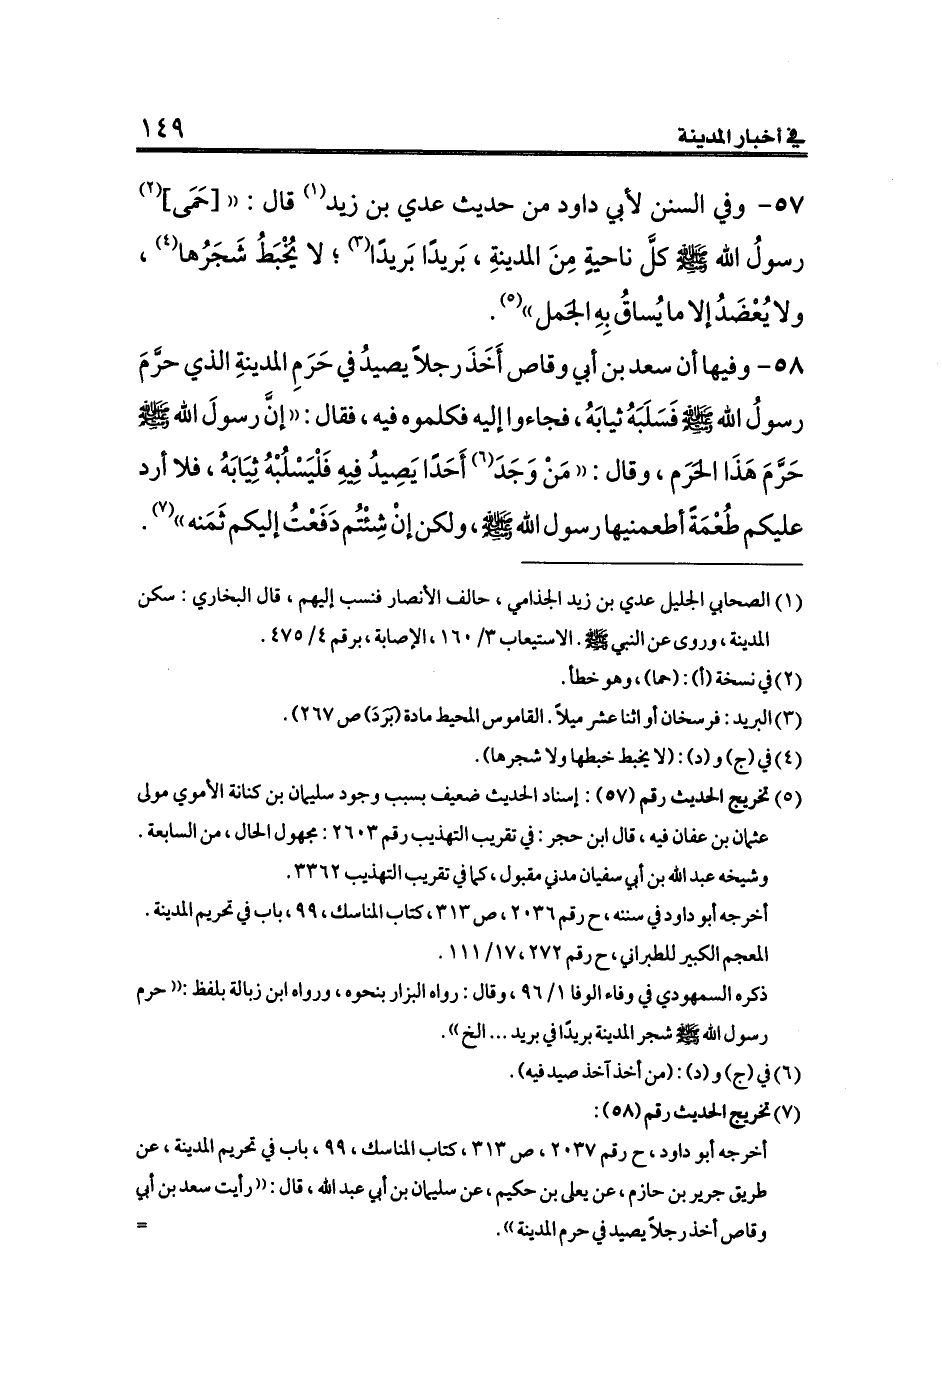 في أخبار المدينة ١٤٩
٥٧- وفي السنن لأبي داود من حديث عدي بن زيد(١) قال : « [حَمَى](٢)
رسولُ الله ﷺ كلَّ ناحيةٍ مِنَ المدينةِ ، بَريدًا بَريدًا(٣) ؛ لا يُخْبَطُ شَجَرُها(٤) ،
ولا يُعْضَدُ إلا ما يُساقُ بِهِ الجَمل»(٥) .
٥٨- وفيها أن سعد بن أبي وقاص أَخَذَ رجلاً يصيدُ في حَرَمِ المدينةِ الذي حرَّمَ
رسولُ الله ﷺ فَسَلَبَهُ ثيابَهُ ، فجاءوا إليه فكلموه فيه ، فقال : « إنَّ رسولَ الله ﷺ
حَرَّمَ هَذَا الحَرم ، وقال : « مَنْ وَجَدَ(٦) أَحَدًا يَصِيدُ فِيهِ فَلْيَسْلُبْهُ ثِيَابَهُ ، فلا أرد
عليكم طُعْمَةً أطعمنيها رسول الله ﷺ ، ولكن إنْ شِئْتُم دَفَعْتُ إليكم ثَمَنه»(٧) .
(١) الصحابي الجليل عدي بن زيد الجذامي ، حالف الأنصار فنسب إليهم ، قال البخاري : سكن
المدينة ، وروى عن النبي ﷺ . الاستيعاب ٣/ ١٦٠ ، الإصابة ، برقم ٤/ ٤٧٥ .
(٢) في نسخة (أ) : (حما) ، وهو خطأ.
(٣) البريد : فرسخان أو اثنا عشر ميلاً . القاموس المحيط مادة (بَرَدَ) ص ٢٦٧) .
(٤) في (ج) و (د) : (لا يخبط خبطها ولا شجرها) .
(٥) تخريج الحديث رقم (٥٧) : إسناد الحديث ضعيف بسبب وجود سليمان بن كنانة الأموي مولى
عثمان بن عفان فيه ، قال ابن حجر : في تقريب التهذيب رقم ٢٦٠٣ : مجهول الحال ، من السابعة .
وشيخه عبد الله بن أبي سفيان مدني مقبول ، كما في تقريب التهذيب ٣٣٦٢ .
أخرجه أبو داود في سننه ، ح رقم ٢٠٣٦ ، ص ٣١٣ ، كتاب المناسك ، ٩٩ ، باب في تحريم المدينة .
المعجم الكبير للطبراني ، ح رقم ٢٧٢ ، ١٧/ ١١١ .
ذكره السمهودي في وفاء الوفا ١/ ٩٦ ، وقال : رواه البزار بنحوه ، ورواه ابن زبالة بلفظ : «حرم
رسول الله ﷺ شجر المدينة بريدًا في بريد ... الخ» .
(٦) في (ج) و (د) : (من أخذ آخذ صيد فيه) .
(٧) تخريج الحديث رقم (٥٨) :
أخرجه أبو داود ، ح رقم ٢٠٣٧ ، ص ٣١٣ ، كتاب المناسك ، ٩٩ ، باب في تحريم المدينة ، عن
طريق جرير بن حازم ، عن يعلى بن حكيم ، عن سليمان بن أبي عبد الله ، قال : «رأيت سعد بن أبي
وقاص أخذ رجلاً يصيد في حرم المدينة» . =